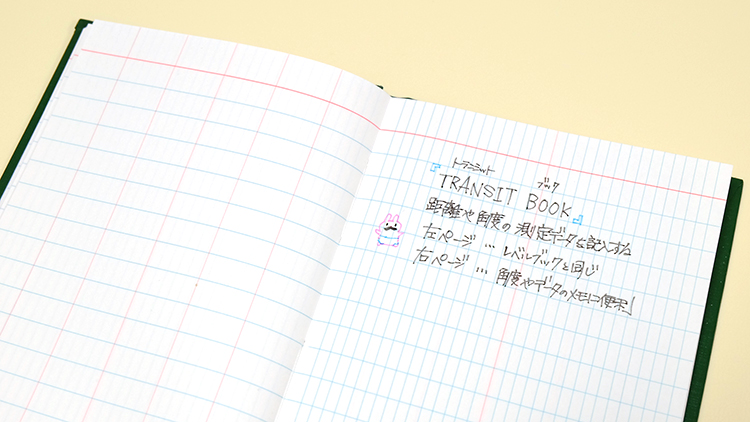 トランシット ブック
『TRANSIT BOOK』
距離や角度の測定データを記入する
左ページ … レベルブックと同じ
右ページ … 角度やデータのメモに便利!